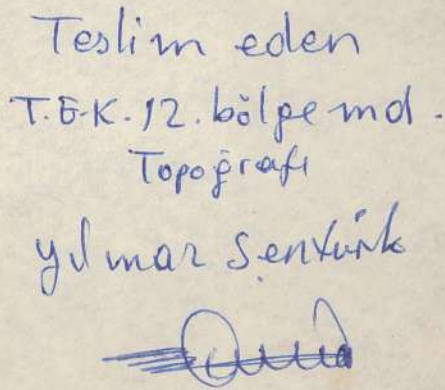 Teslim eden
T.E.K. 12. bölge md.
Topoğrafı
Yılmaz Şentürk